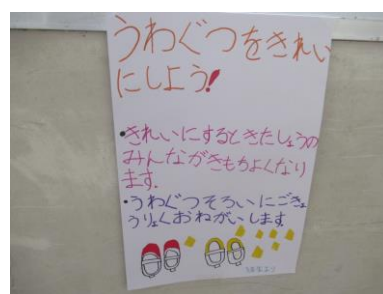 うわぐつをきれい
にしよう!
・きれいにするときたしょうの
みんながきもちよくなり
ます.
・うわぐつそろいにごきょ
うりょくおねがいします